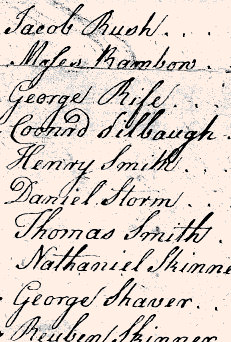 Jacob Rush . . .
Myles Rambow .
George Rife . . .
Coonrd Silbaugh .
Henry Smith .
Daniel Storm . .
Thomas Smith .
Nathaniel Skinne
George Shaver . .
Reuben Skinner